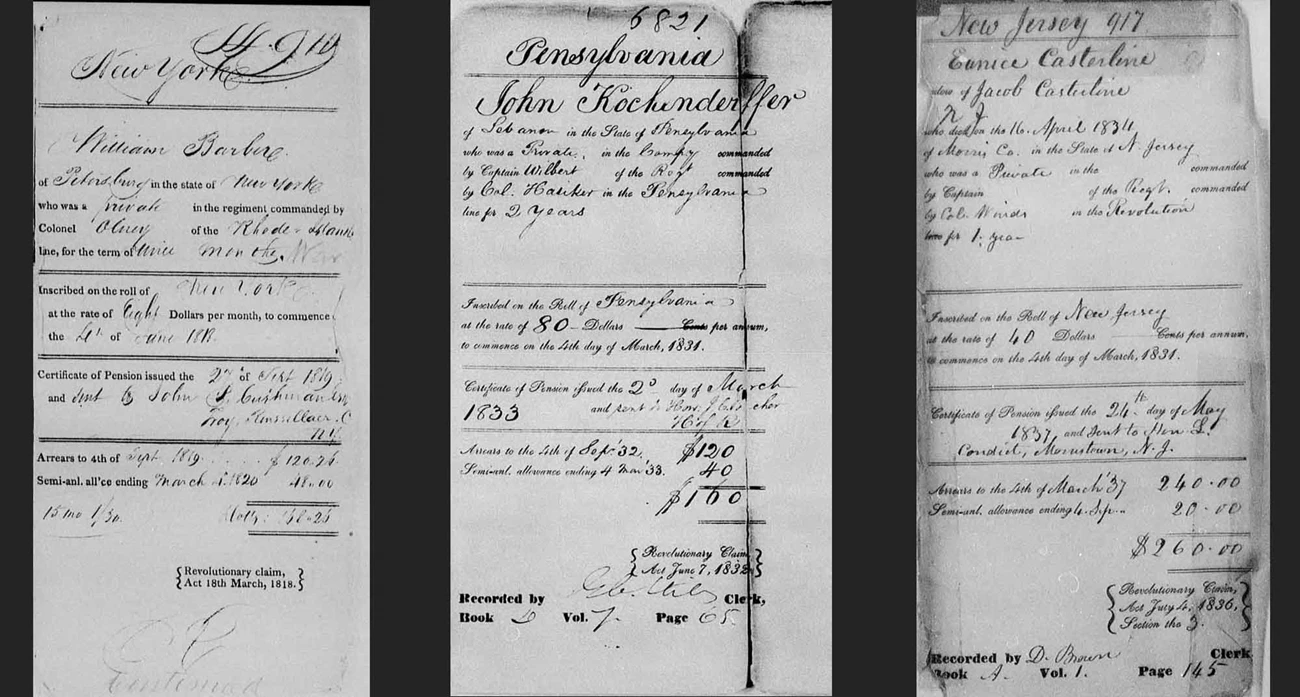 New York
William Barber
of Petersburg in the state of New York
who was a private in the regiment commanded by
Colonel Olney of the Rhode Island
line, for the term of months.
Inscribed on the roll of New York
at the rate of Eight Dollars per month, to commence
the 4th of June 1818.
Certificate of Pension issued the of Sept 1819
and sent to John Cushman
Troy,
N.Y.
Arrears to 4th of Sept 1819 $ 120.26
Semi-anl. all'ce ending March 4. 1820 48.00
15 mo 1/30.
{Revolutionary claim,
Act 18th March, 1818.}
6821
Pensylvania
John Kochenderffer
of Lebanon in the State of Pensylvania
who was a Private. in the Compy commanded
by Captain Wilbert of the Regt commanded
by Col. in the Pensylvania
line for 2 Years
Inscribed on the Roll of Pensylvania
at the rate of 80 Dollars Cents per annum,
to commence on the 4th day of March, 1831.
Certificate of Pension issued the 2d day of March
1833 and sent to Hon. J.
H of R
Arrears to the 4th of Sept. 32. $120
Semi-anl. allowance ending 4 Mar 33. 40
$160
{Revolutionary Claim,
Act June 7, 1832}
Recorded by Clerk,
Book D Vol. 7. Page 65
New Jersey 917
Eunice Casterline
widow of Jacob Casterline
who died on the 16. April 1834
of Morris Co. in the State of N. Jersey
who was a Private in the commanded
by Captain of the Regt. commanded
by Col. Winds in the Revolution
line for 1. year
Inscribed on the Roll of New Jersey
at the rate of 40 Dollars Cents per annum.
to commence on the 4th day of March, 1831.
Certificate of Pension issued the 24th day of May
1837, and sent to Hon. L.
Condict, Morristown, N. J.
Arrears to the 4th of March '37 240.00
Semi-anl. allowance ending 4. Sep. 20.00
$260.00
{Revolutionary Claim,
Act July 4, 1836,
Section the 3.}
Recorded by D. Brown Clerk
Book A. Vol. 1. Page 145